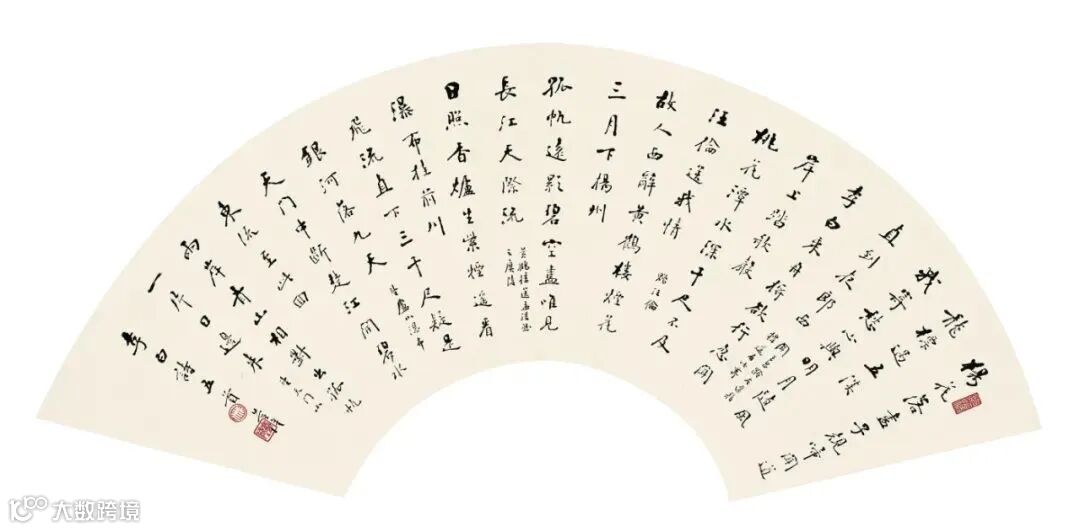 楊花落盡子規啼聞道
龍標過五溪
我寄愁心與明月隨風
直到夜郎西
李白乘舟將欲行忽聞
岸上踏歌聲
桃花潭水深千尺不及
汪倫送我情 贈汪倫
故人西辭黃鶴樓煙花
三月下揚州
孤帆遠影碧空盡唯見
長江天際流 黃鶴樓送孟浩然
之廣陵
日照香爐生紫煙遙看
瀑布挂前川
飛流直下三千尺疑是
銀河落九天 望廬山瀑布
天門中斷楚江開碧水
東流至此回
兩岸青山相對出孤帆
一片日邊來 望天門山
李白詩五首
大数跨境